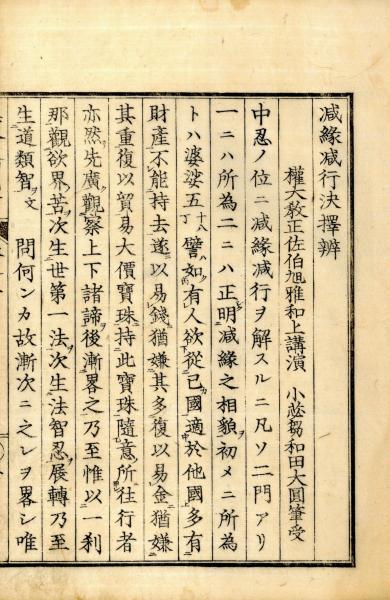 減緣減行決擇辨
權大敎正佐伯旭雅和上講演 小苾蒭和田大圓筆受
中忍ノ位ニ減緣減行ヲ解スルニ凡ソ二門アリ
一ニハ所為二ニハ正明減緣之相貌初メニ所為
トハ婆娑五十八丁譬如有人欲從己國適於他國多有
財產不能持去遂以易錢猶嫌其多復以易金猶嫌
其重復以貿易大價寶珠持此寶珠隨意所往行者
亦然先廣觀察上下諸諦後漸畧之乃至惟以一刹
那觀欲界苦次生世第一法次生法智忍展轉乃至
生道類智文 問何ンカ故漸次ニ之レヲ畧シ唯